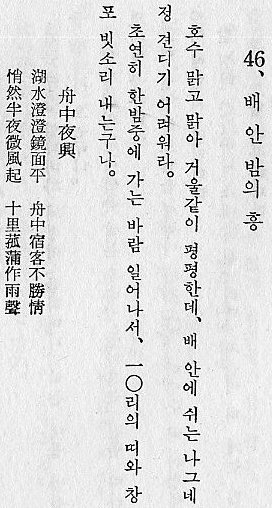 46、배 안 밤의 흥
호수 맑고 맑아 거울같이 평평한데、배 안에 쉬는 나그네
정 견디기 어려워라。
초연히 한밤중에 가는 바람 일어나서、一〇리의 띠와 창
포 빗소리 내는구나。
舟中夜興
湖水澄澄鏡面平 舟中宿客不勝情
悄然半夜微風起 十里菰蒲作雨聲